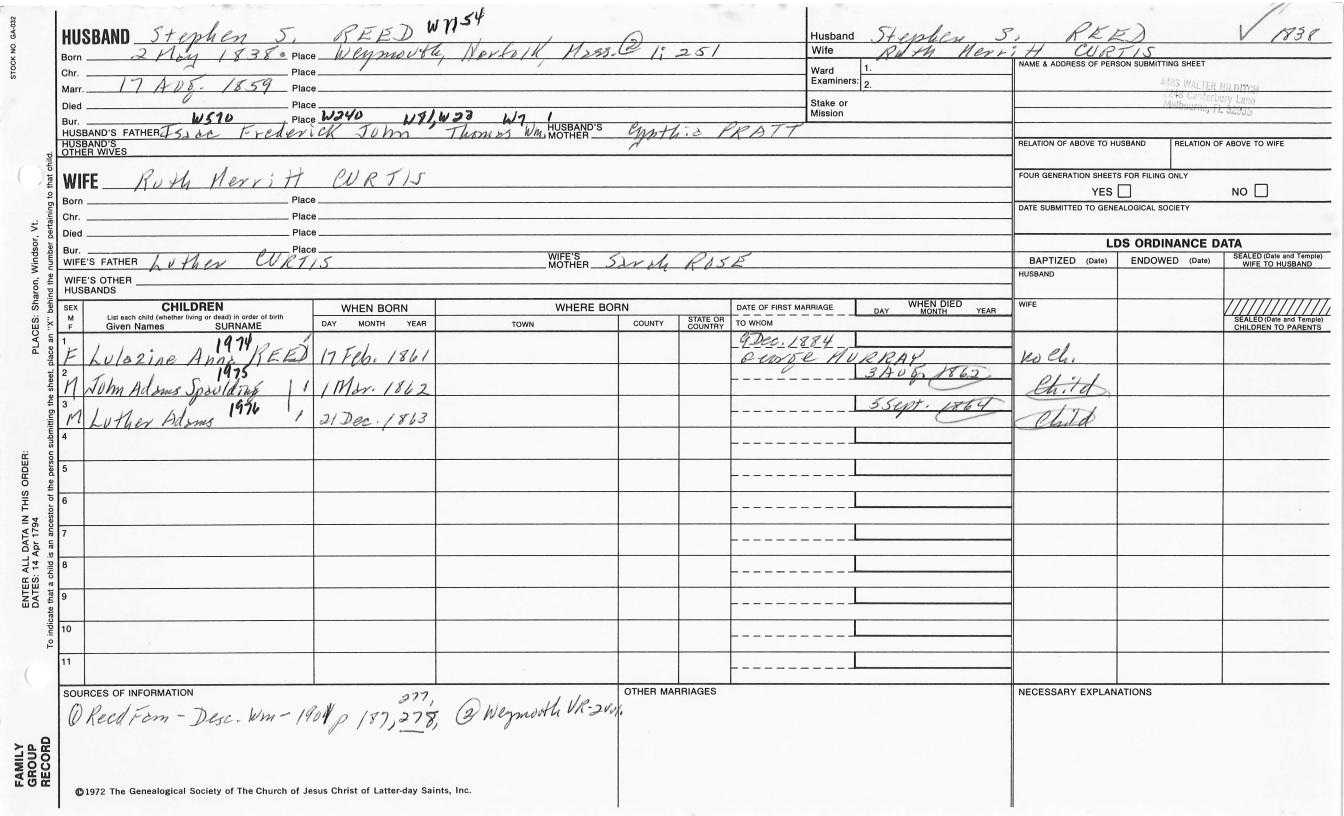 STOCK NO. GA-032
HUSBAND Stephen S. REED W1154
Born 2 May 1838 Place Weymouth, Norfolk, Mass. ② 1:251
Chr. Place
Marr. 17 Aug. 1859 Place
Died Place
Bur. Place
W570 W240 W81, W23 W7 1
HUSBAND'S FATHER Isaac Frederick John Thomas Wm. HUSBAND'S MOTHER Cynthia PRATT
HUSBAND'S OTHER WIVES
WIFE Ruth Merritt CURTIS
Born Place
Chr. Place
Died Place
Bur. Place
WIFE'S FATHER Luther CURTIS WIFE'S MOTHER Sarah ROSE
WIFE'S OTHER HUSBANDS
Husband Stephen S. REED ✓ 1838
Wife Ruth Merritt CURTIS
Ward Examiners: 1. 2.
Stake or Mission
NAME & ADDRESS OF PERSON SUBMITTING SHEET
RELATION OF ABOVE TO HUSBAND RELATION OF ABOVE TO WIFE
FOUR GENERATION SHEETS FOR FILING ONLY
YES NO
DATE SUBMITTED TO GENEALOGICAL SOCIETY
LDS ORDINANCE DATA
BAPTIZED (Date) ENDOWED (Date) SEALED (Date and Temple) WIFE TO HUSBAND
HUSBAND
WIFE
SEALED (Date and Temple) CHILDREN TO PARENTS
SEX M F CHILDREN WHEN BORN WHERE BORN DATE OF FIRST MARRIAGE WHEN DIED
List each child (whether living or dead) in order of birth
Given Names SURNAME DAY MONTH YEAR TOWN COUNTY STATE OR COUNTRY TO WHOM DAY MONTH YEAR
1974 9 Dec. 1884
1 F Lulazine Anna REED 17 Feb. 1861 George MURRAY no ch.
1975
2 M John Adams Spaulding 1 1 Mar. 1862 3 Aug. 1862 Child
1976
3 M Luther Adams 1 21 Dec. 1863 5 Sept. 1864 Child
4
5
6
7
8
9
10
11
SOURCES OF INFORMATION
277,
① Reed Fam - Desc. Wm - 1901 p 187, 278, ② Weymouth VR-2vol.
OTHER MARRIAGES
NECESSARY EXPLANATIONS
©1972 The Genealogical Society of The Church of Jesus Christ of Latter-day Saints, Inc.
FAMILY GROUP RECORD
ENTER ALL DATA IN THIS ORDER:
DATES: 14 Apr 1794
PLACES: Sharon, Windsor, Vt.
To indicate that a child is an ancestor of the person submitting the sheet, place an "X" behind the number pertaining to that child.